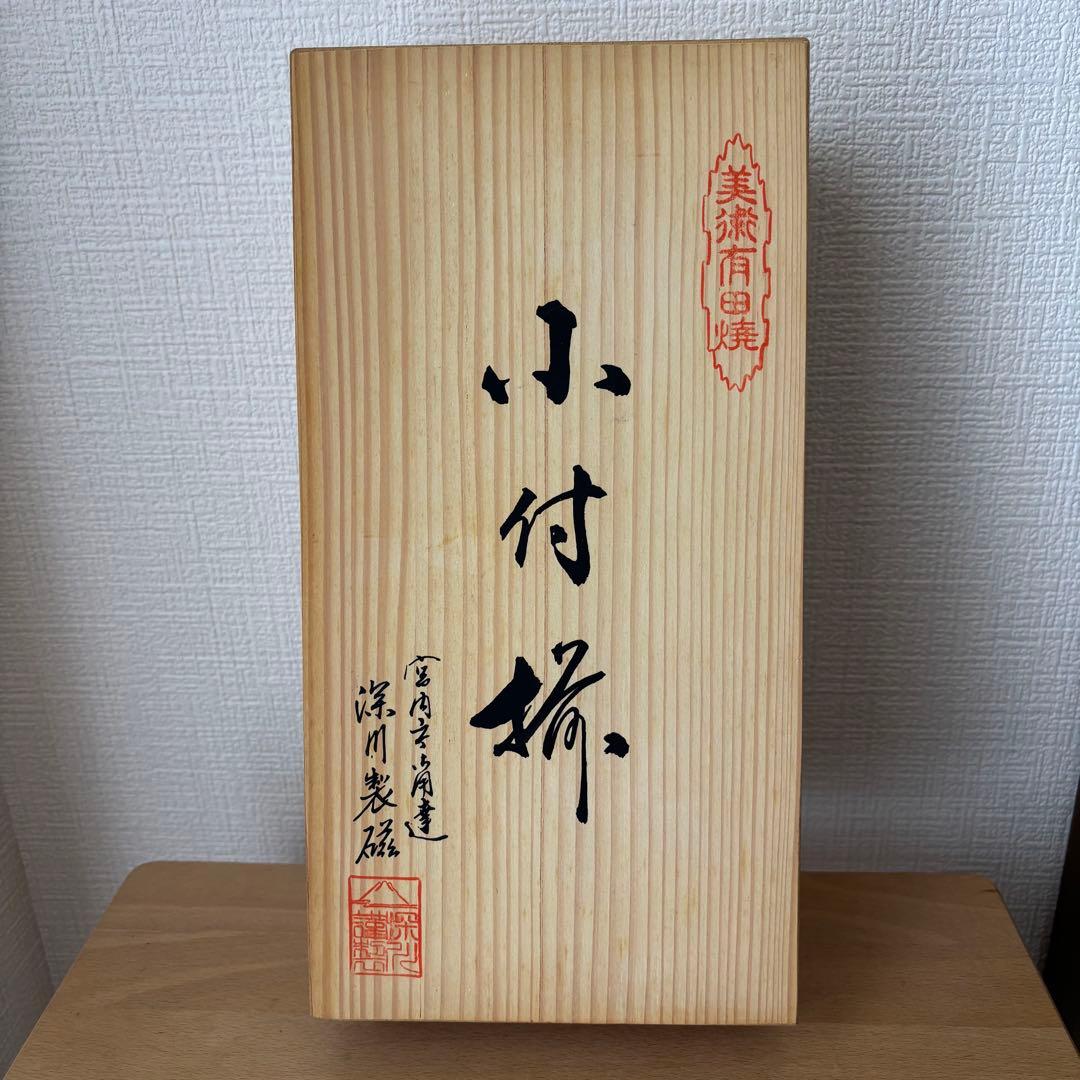 美術有田焼
小付揃
宮内庁御用達
深川製磁
深川
謹製